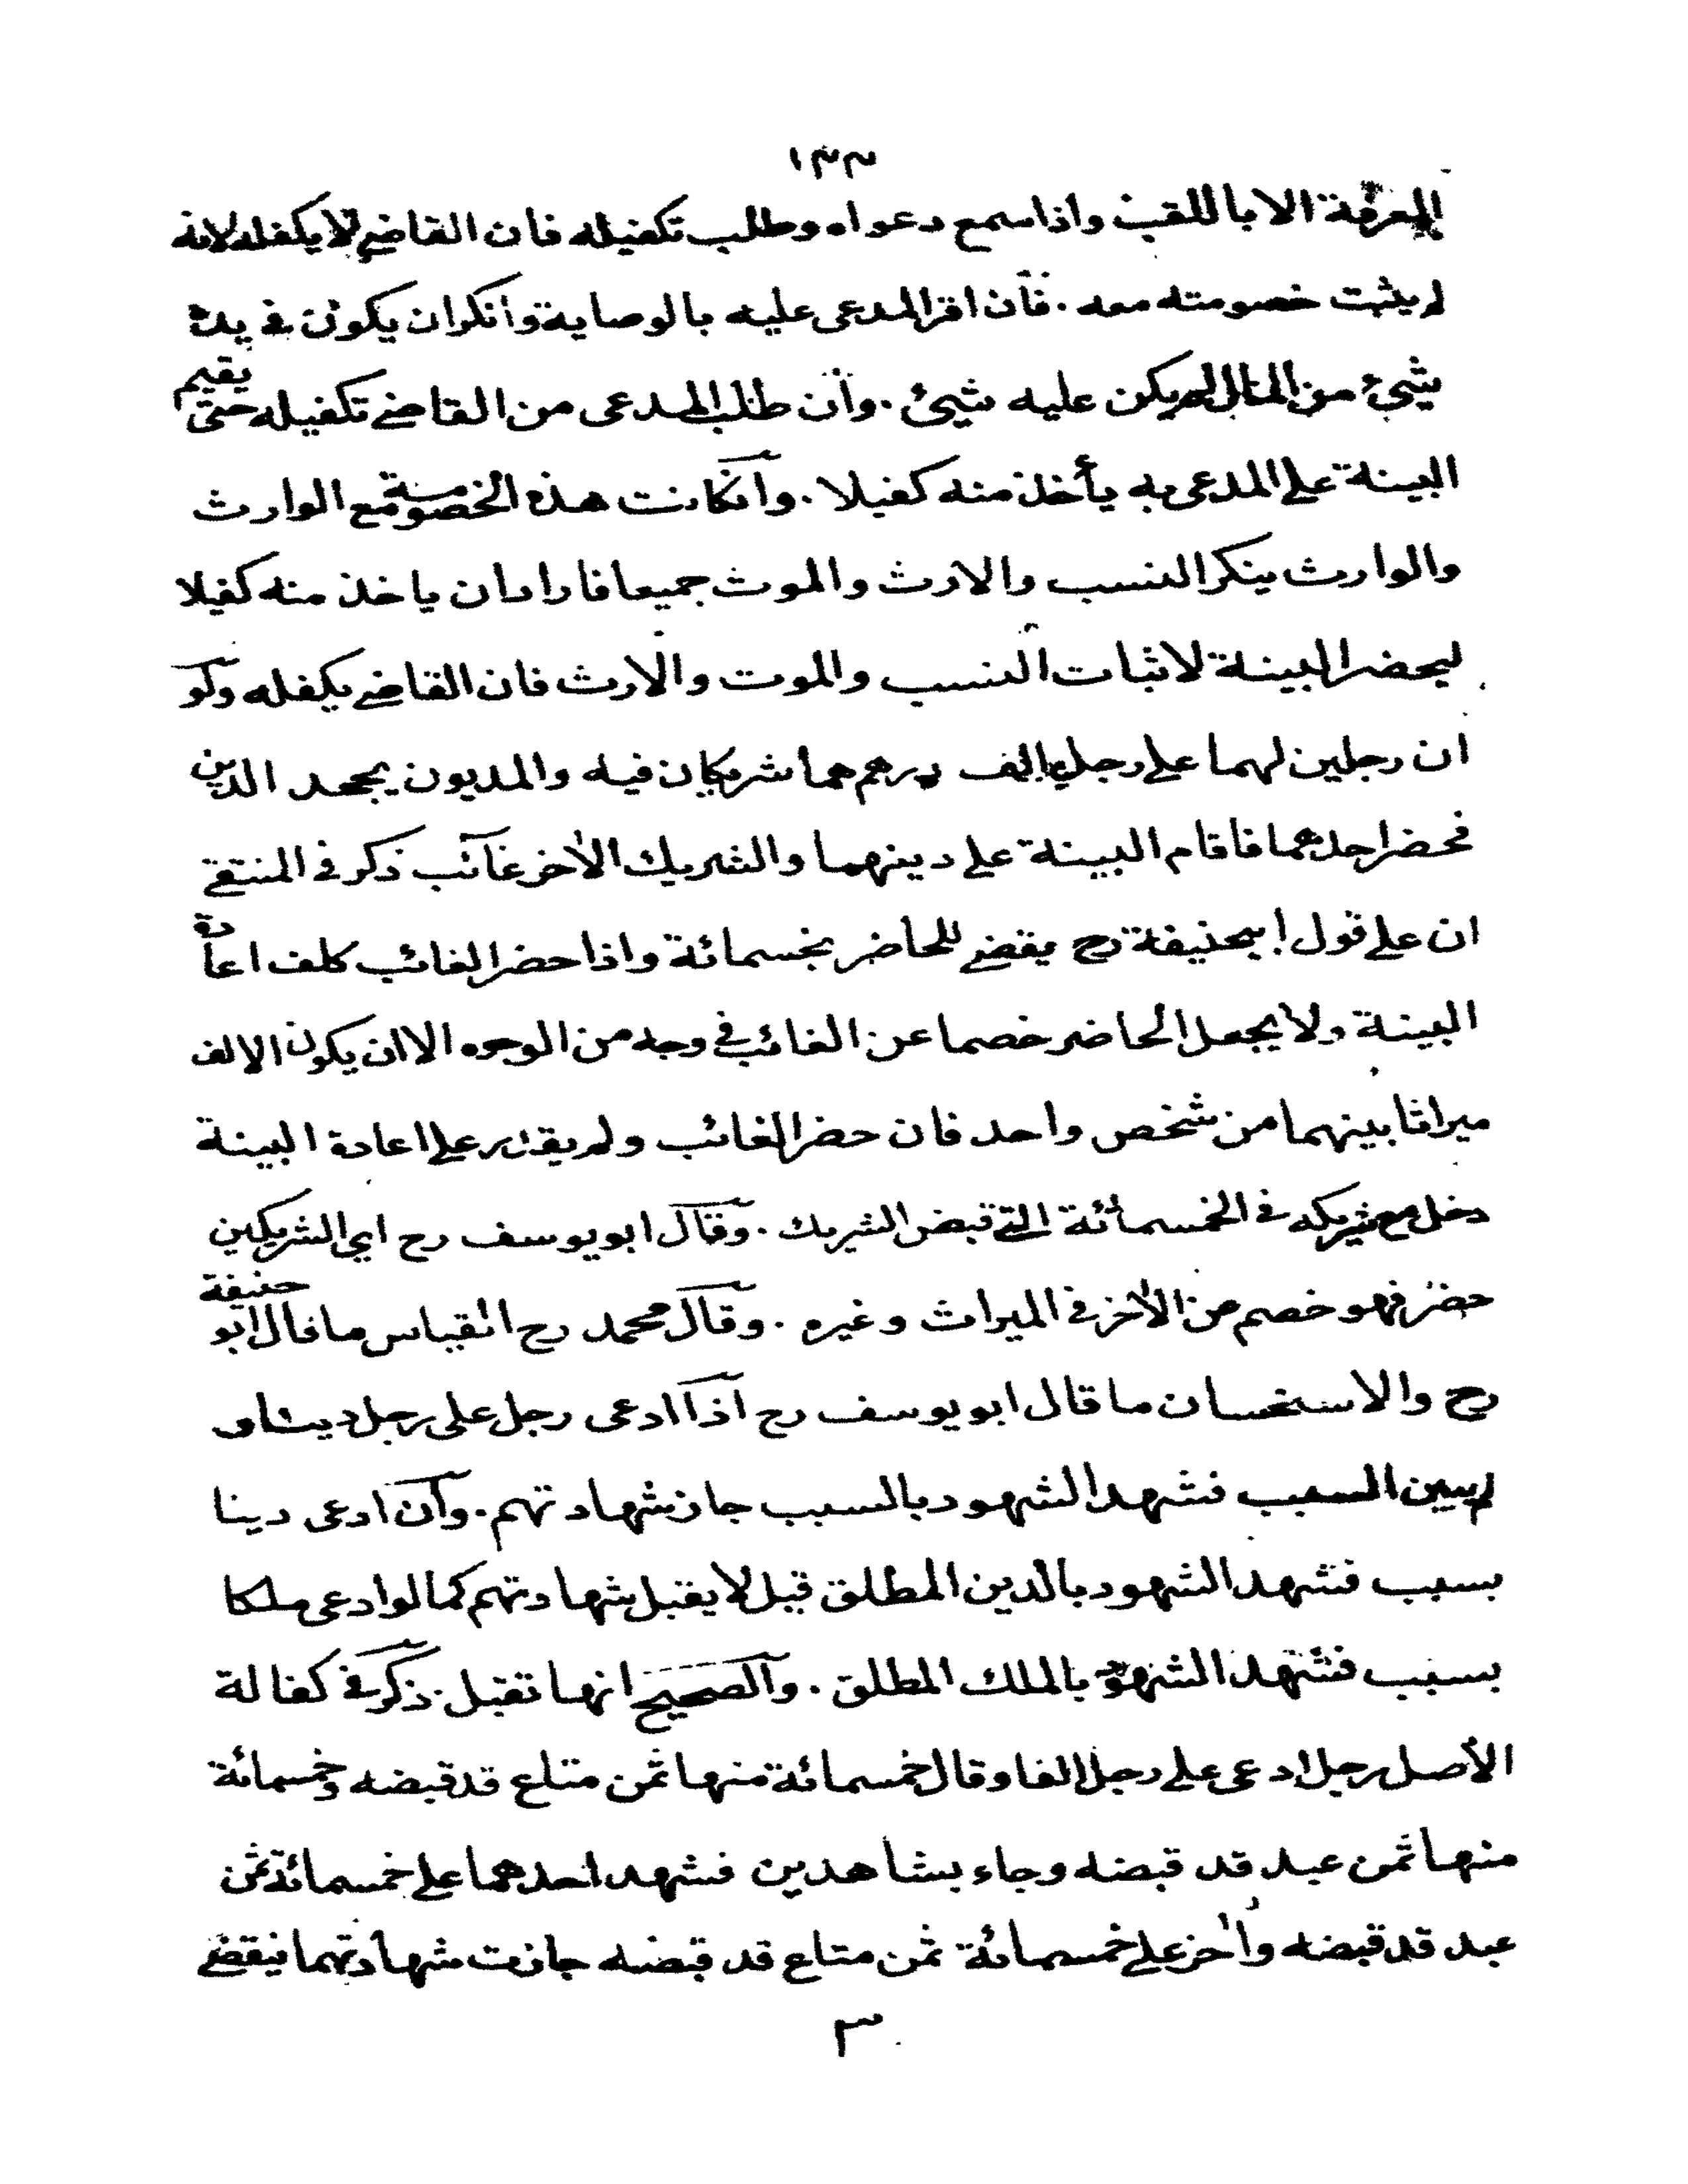 ١٣٣
المعرفة الا باللقب واذا سمع دعواه وطلب تكفيله فان القاضى لا يكفله لانه
لم يثبت خصومته معه . فان اقر المدعى عليه بالوصاية وانكر ان يكون فى يده
شيئ من المال لم يكن عليه شيئ . وان طلب المدعى من القاضى تكفيله حتى يقيم
البينة على المدعى به يأخذ منه كفيلا . وانكانت هذه الخصومة مع الوارث
والوارث ينكر النسب والارث والموت جميعا فاراد ان ياخذ منه كفيلا
ليحضر البينة لاثبات النسب والموت والارث فان القاضى يكفله ولو
ان رجلين لهما على رجل الف درهم هما شريكان فيه والمديون يجحد الدين
فحضر احدهما فاقام البينة على دينهما والشريك الاخر غائب ذكر فى المنتقى
ان على قول ابيحنيفة رح يقضى للحاضر بخسمائة واذا حضر الغائب كلف اعادة
البينة ولا يجعل الحاضر خصما عن الغائب فى وجه من الوجوه الا ان يكون الالف
ميراثا بينهما من شخص واحد فان حضر الغائب ولم يقدر على اعادة البينة
دخل مع شريكه فى الخمسمائة التى قبض الشريك . وقال ابو يوسف رح اى الشريكين
حضر فهو خصم من الاخر فى الميراث وغيره . وقال محمد رح القياس ما قال ابو حنيفة
رح والاستحسان ما قال ابو يوسف رح اذا ادعى رجل على رجل دينا و
لم يبين السبب فشهد الشهود بالسبب جاز شهادتهم . وان ادعى دينا
بسبب فشهد الشهود بالدين المطلق قيل لا يقبل شهادتهم كما لو ادعى ملكا
بسبب فشهد الشهود بالملك المطلق . والصحيح انها تقبل . ذكر فى كفالة
الأصل رجل ادعى على رجل الفا وقال خمسمائة منها ثمن متاع قد قبضه وخمسمائة
منها ثمن عبد قد قبضه وجاء بشاهدين فشهد احدهما على خمسمائة ثمن
عبد قد قبضه واخر على خمسمائة ثمن متاع قد قبضه جازت شهادتهما فيقضى
٣